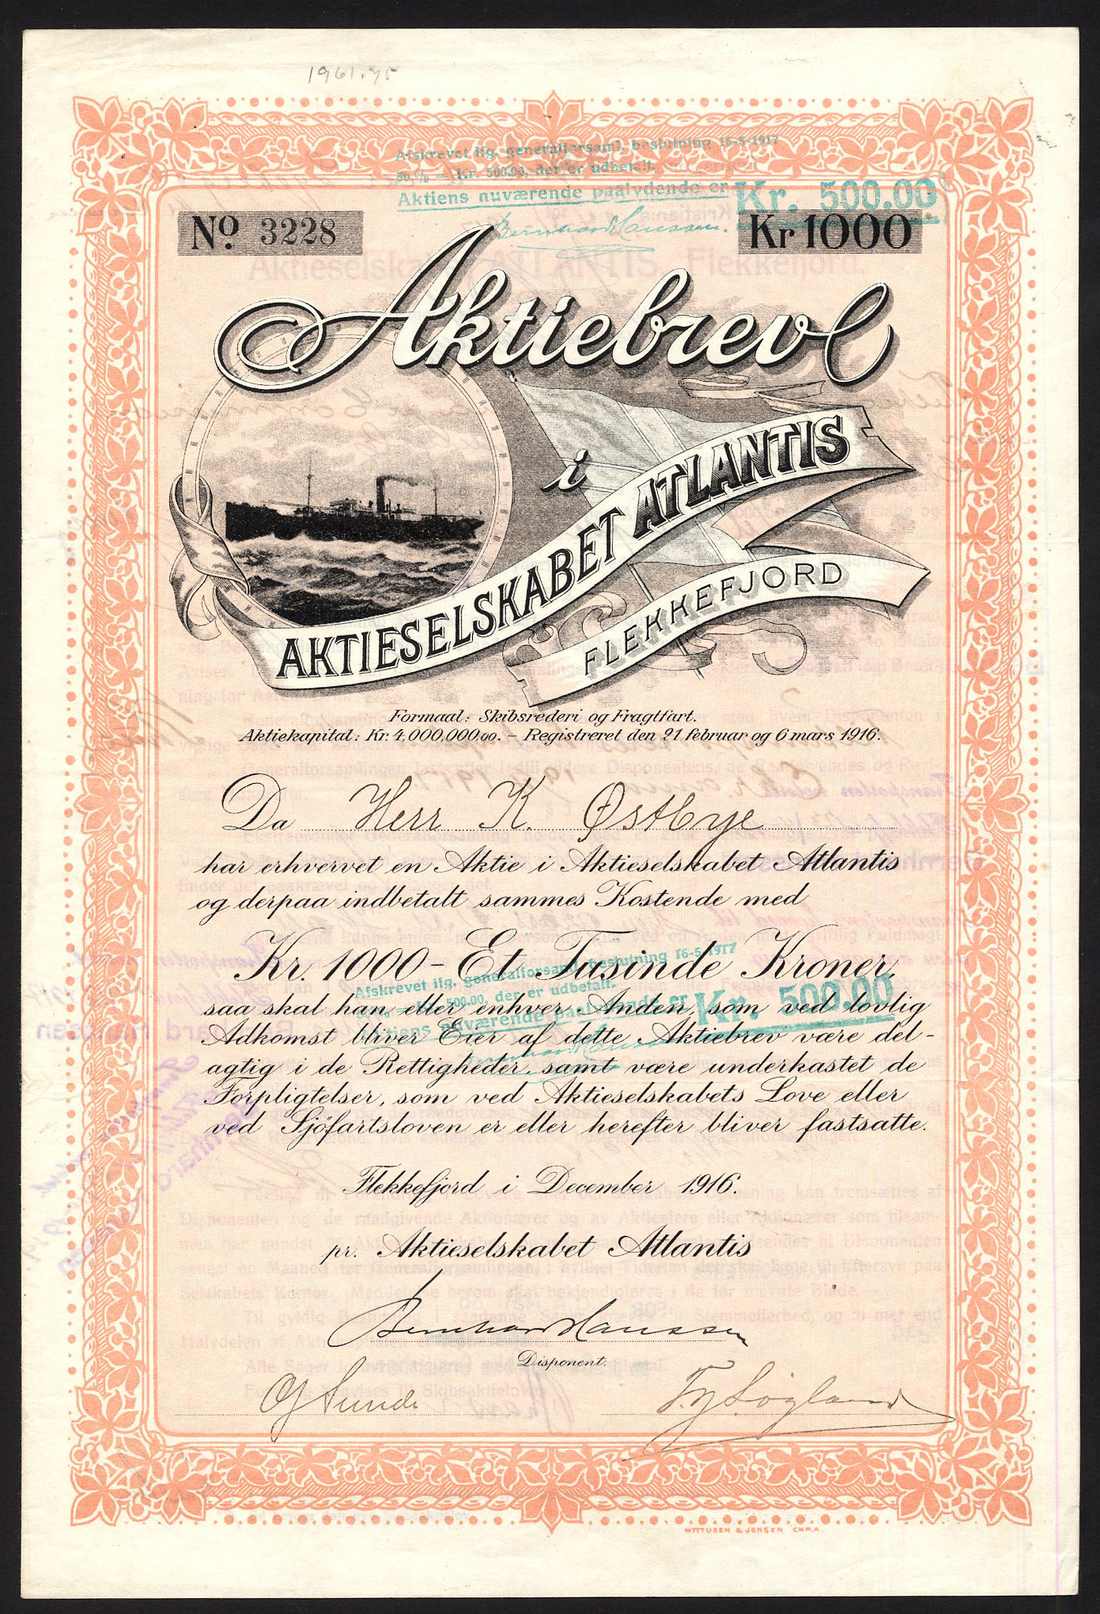 1961.95
Afskrevet ifg. generalforsaml. beslutning 16-5-1917
50% – Kr. 500.00, der er udbetalt.
Aktiens nuværende paalydende er Kr. 500.00
Bernhard Hanssen.
No. 3228
Kr 1000
Aktiebrev
i
AKTIESELSKABET ATLANTIS
FLEKKEFJORD
Formaal: Skibsrederi og Fragtfart.
Aktiekapital: Kr. 4,000,000.00. – Registreret den 21 februar og 6 mars 1916.
Da Herr K. Østbye
har erhvervet en Aktie i Aktieselskabet Atlantis
og derpaa indbetalt sammes Kostende med
Kr. 1000 – Et Tusinde Kroner,
Afskrevet ifg. generalforsaml. beslutning 16-5-1917
Kr. 500.00, der er udbetalt.
Aktiens nuværende paalydende er Kr. 500.00
saa skal han eller enhver Anden, som ved lovlig
Adkomst bliver Eier af dette Aktiebrev være del-
agtig i de Rettigheder, samt være underkastet de
Forpligtelser, som ved Aktieselskabets Love eller
ved Sjöfartsloven er eller herefter bliver fastsatte.
Flekkefjord i December 1916.
pr. Aktieselskabet Atlantis
Bernhard Hanssen
Disponent.
Sunde
Søgland
WITTUSEN & JENSEN CHRA.